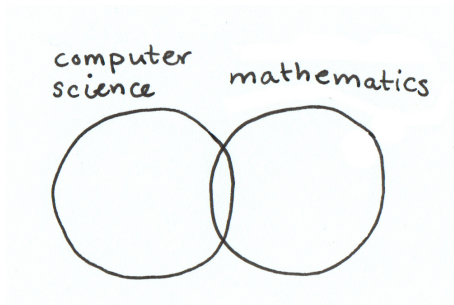 computer
science
mathematics